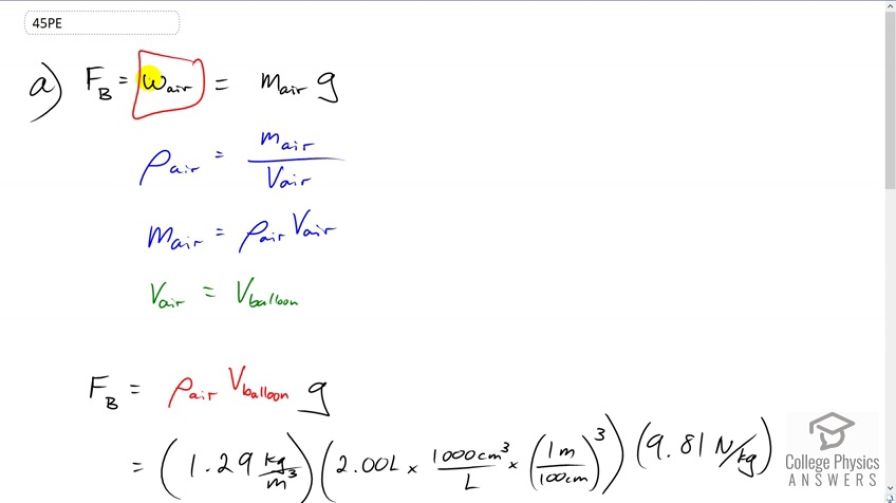 45PE
a) F_B = w_air = m_air g
ρ_air = m_air / V_air
m_air = ρ_air V_air
V_air = V_balloon
F_B = ρ_air V_balloon g
= (1.29 kg/m³)(2.00L × 1000cm³/L × (1m/100cm)³)(9.81 N/kg)
College Physics
ANSWERS